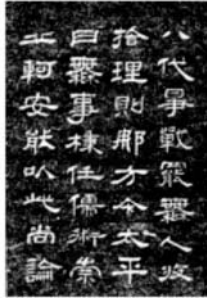 八代爭戰罷無人收
拾理則那方今太平
日無事棅任儒術崇
丘軻安能以此尚論